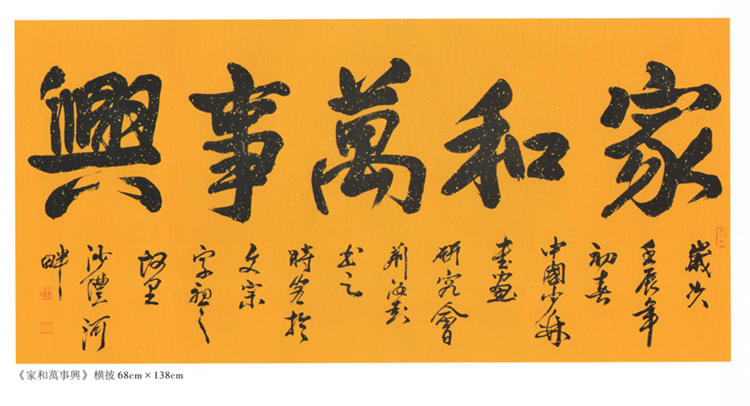 家和萬事興
歲次
壬辰年
初春
中國少林
書画
研究會
书之
文宗
字祖之
故里
沙澧河
畔
《家和萬事興》橫披 68cm×138cm